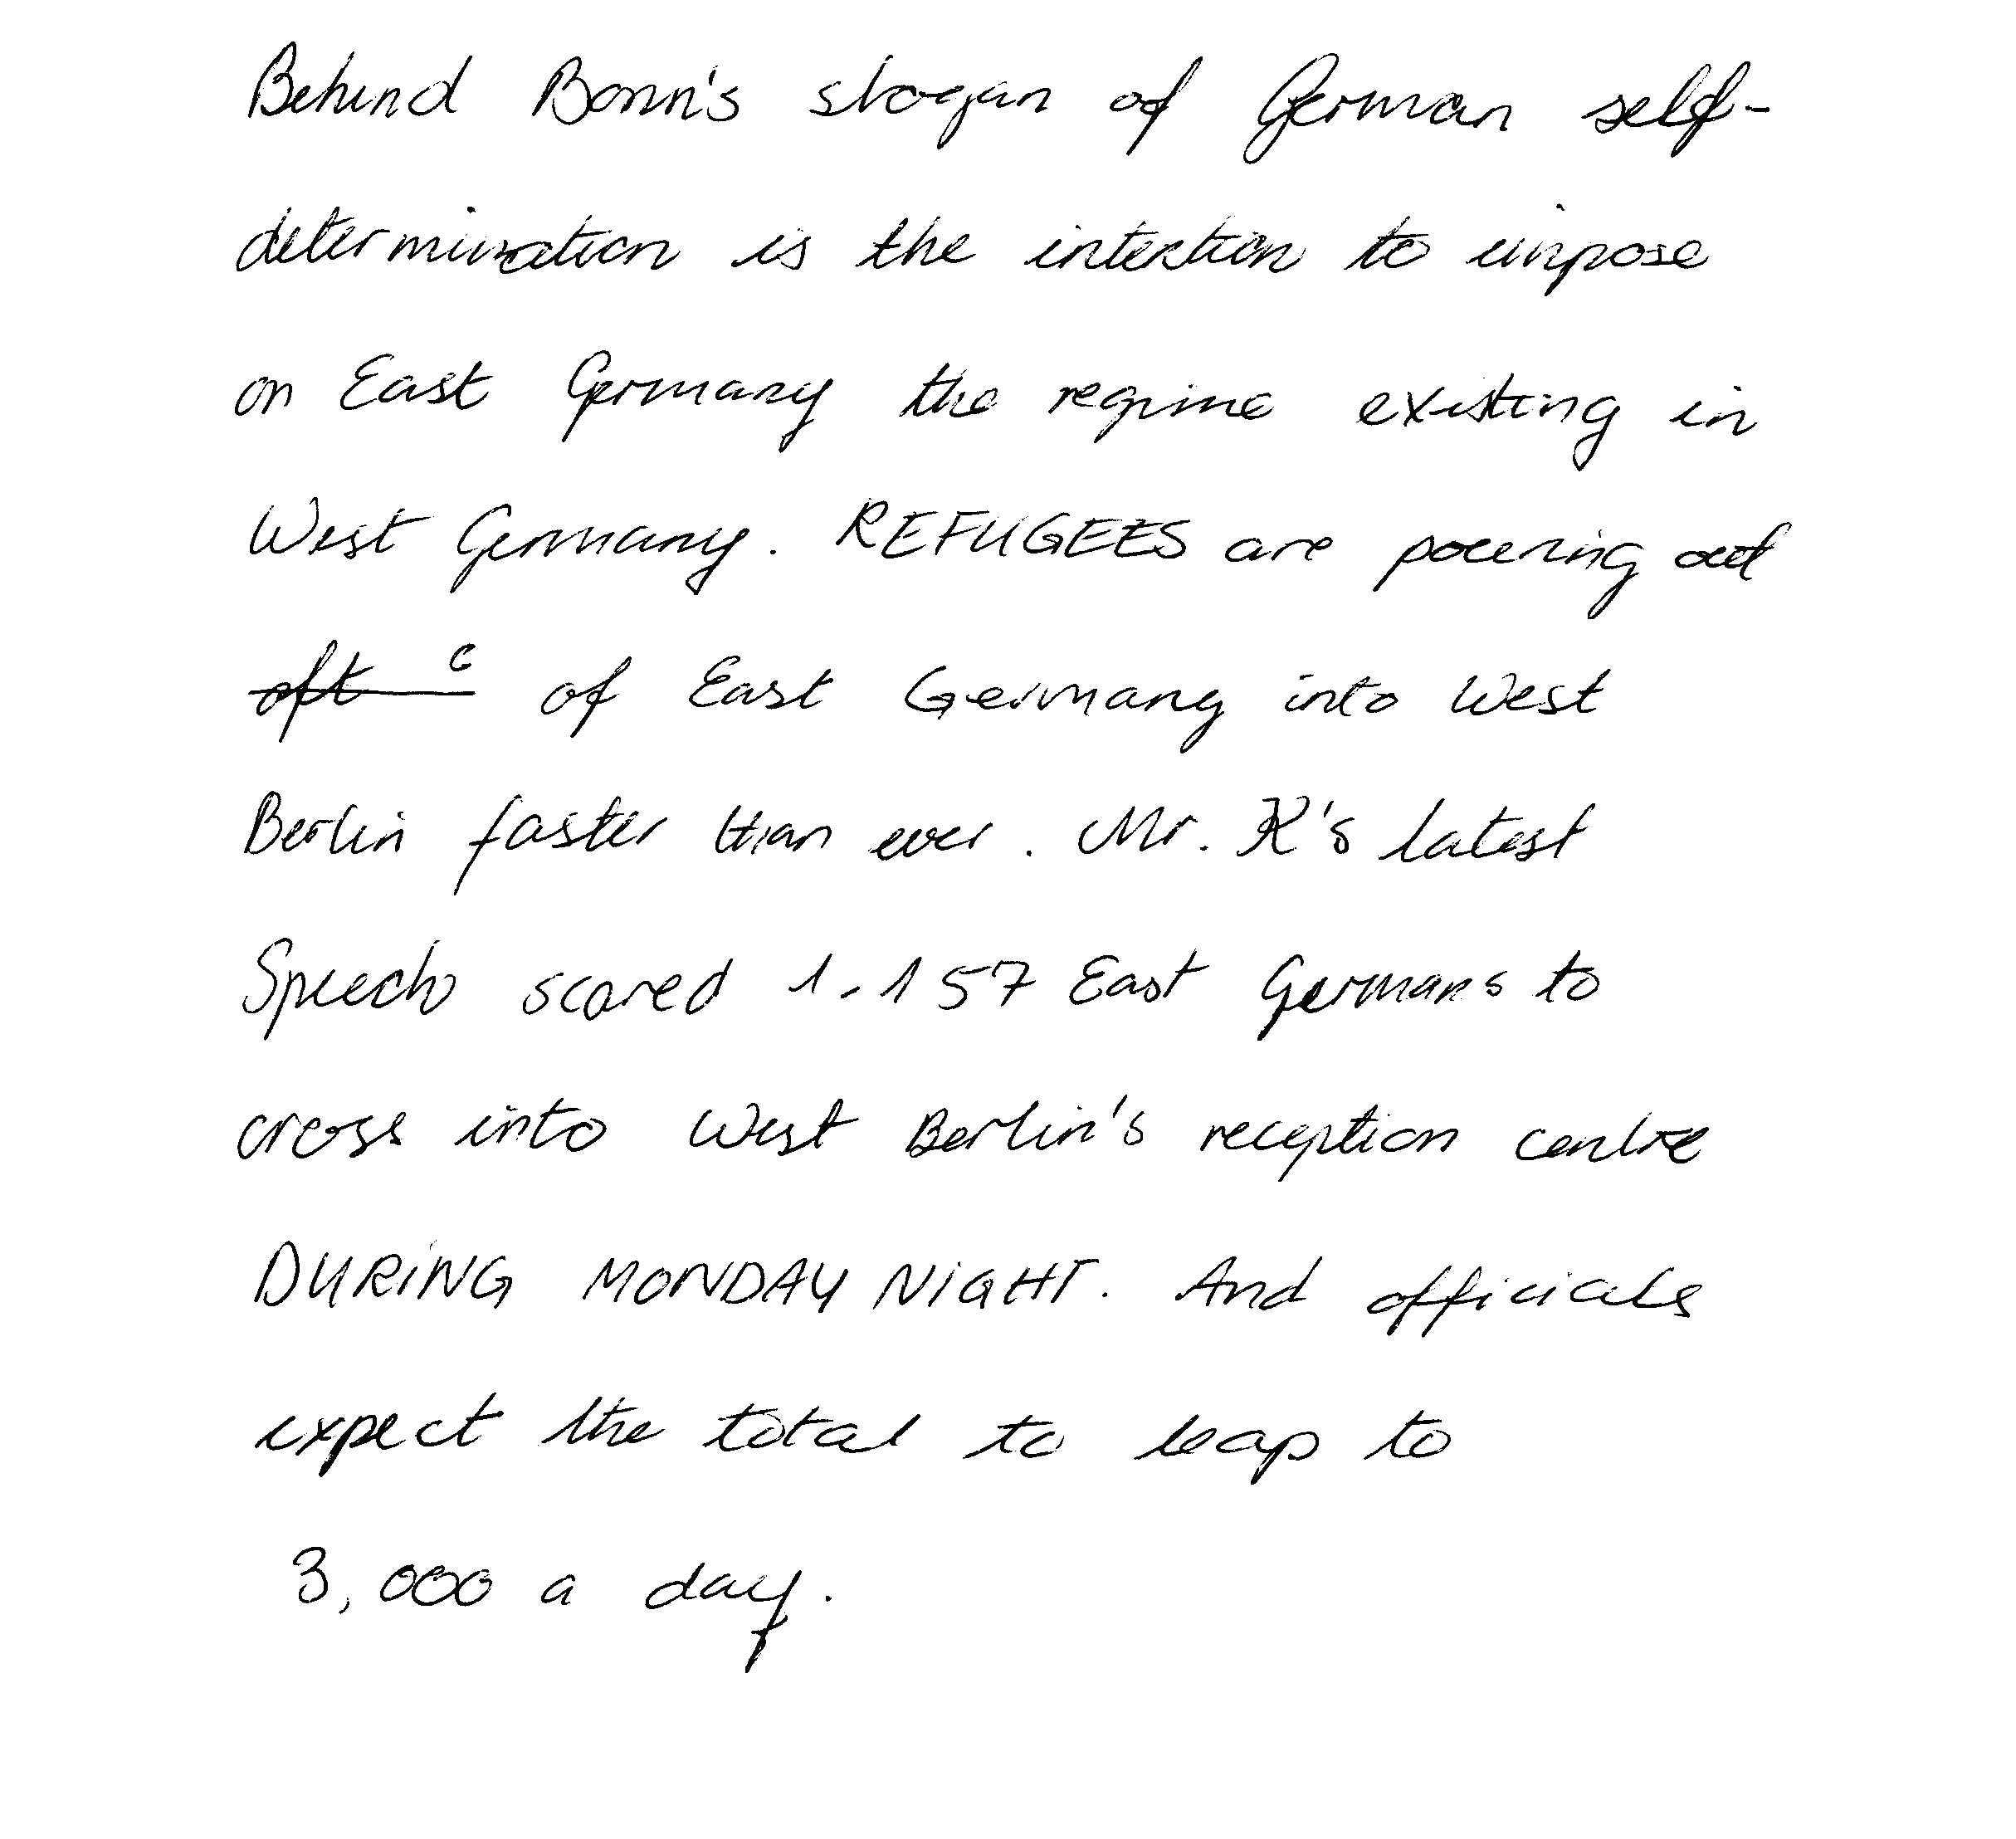 Behind Bonn's slogan of German self-
determination is the intention to impose
on East Germany the regime existing in
West Germany. REFUGEES are pouring out
of East Germany into West
Berlin faster than ever. Mr. K's latest
Speech scared 1.157 East Germans to
cross into West Berlin's reception centre
DURING MONDAY NIGHT. And officials
expect the total to leap to
3,000 a day.